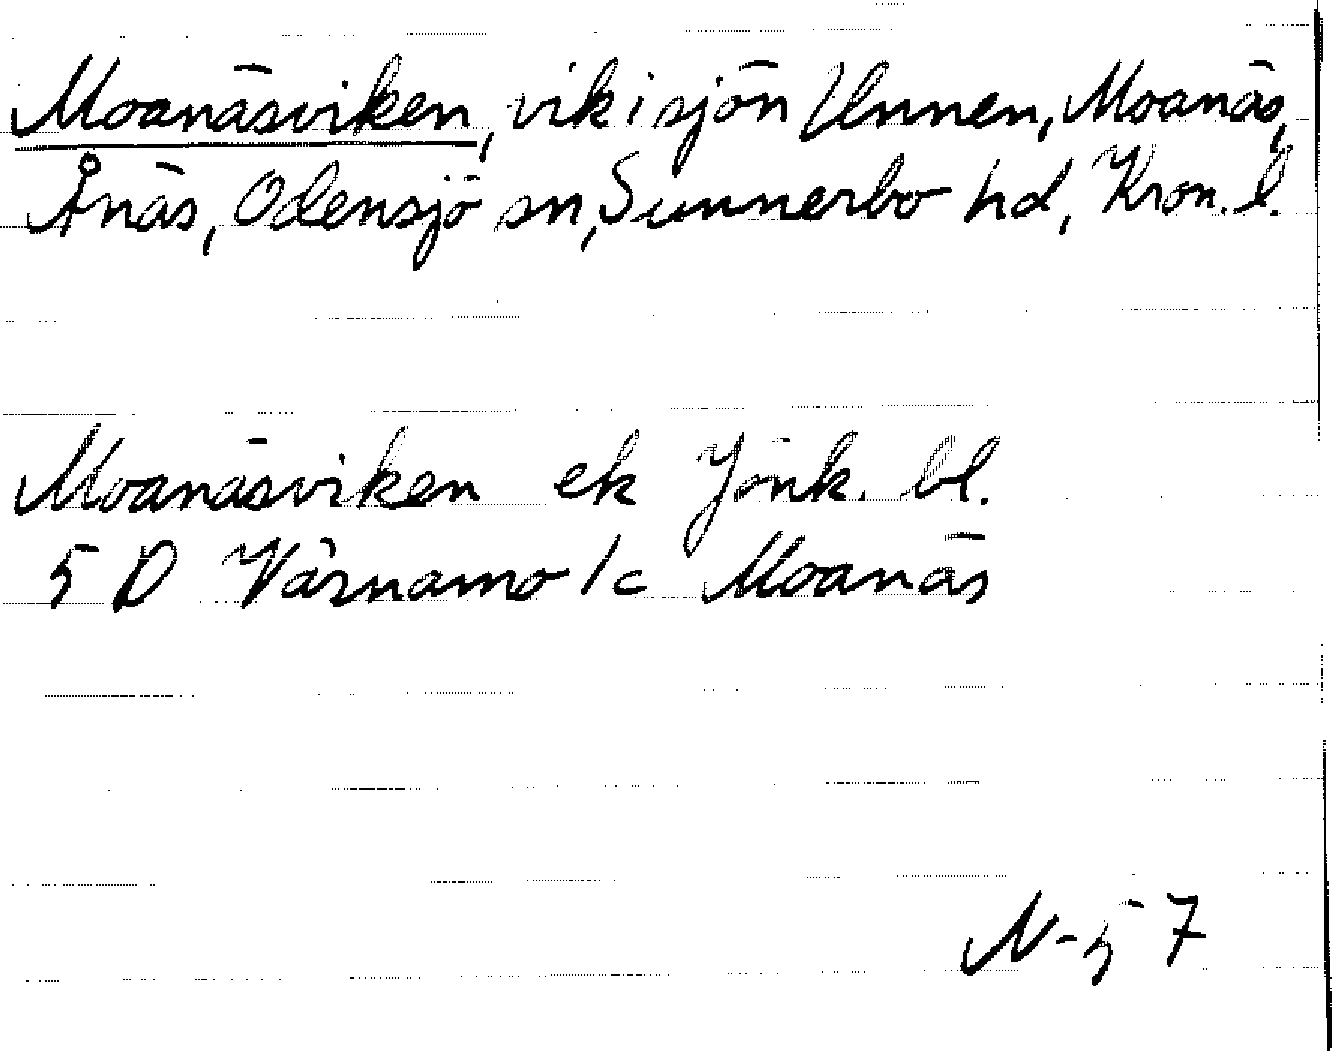 Moanäsviken, vik i sjön Unnen, Moanäs,
Ånäs, Odensjö sn, Sunnerbo hd, Kron. l.
Moanäsviken ek Jönk. bl.
5 D Värnamo 1c Moanäs
N-57